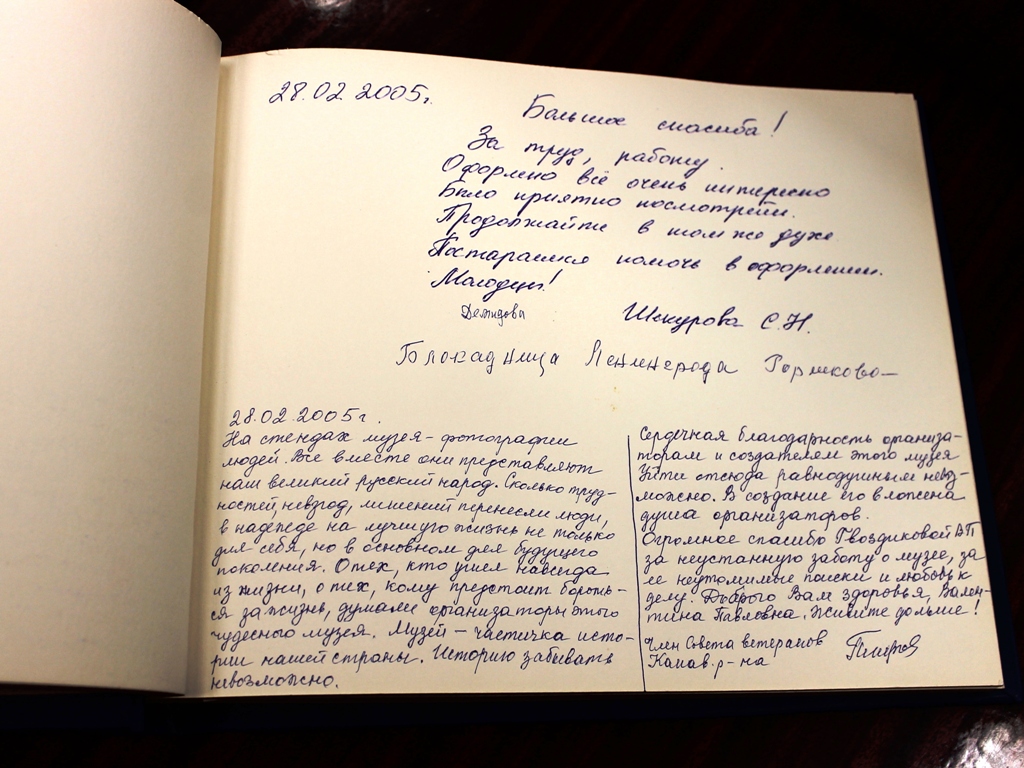 28.02.2005г.
Большое спасибо!
За труд, работу.
Оформлено всё очень интересно
Было приятно посмотреть.
Продолжайте в том же духе.
Постараемся помочь в оформлении.
Молодцы!
Демидова Шкурова С.Н.
Блокадница Ленинграда
28.02.2005г.
На стендах музея - фотографии
людей. Все вместе они представляют
наш великий русский народ. Сколько труд-
ностей, невзгод, лишений перенесли люди,
в надежде на лучшую жизнь не только
для себя, но в основном для будущего
поколения. О тех, кто ушел навсегда
из жизни, о тех, кому предстоит бороть-
ся за жизнь, думали организаторы этого
чудесного музея. Музей - частичка исто-
рии нашей страны. Историю забывать
невозможно.
Сердечная благодарность организа-
торам и создателям этого музея
Уйти отсюда равнодушным невоз-
можно. В создание его вложена
душа организаторов.
Огромное спасибо Гвоздиковой ВП
за неустанную заботу о музее, за
ее неутомимые поиски и любовь к
делу. Доброго Вам здоровья, Вален-
тина Павловна. Живите дольше!
Член Совета ветеранов
Канав. р-на